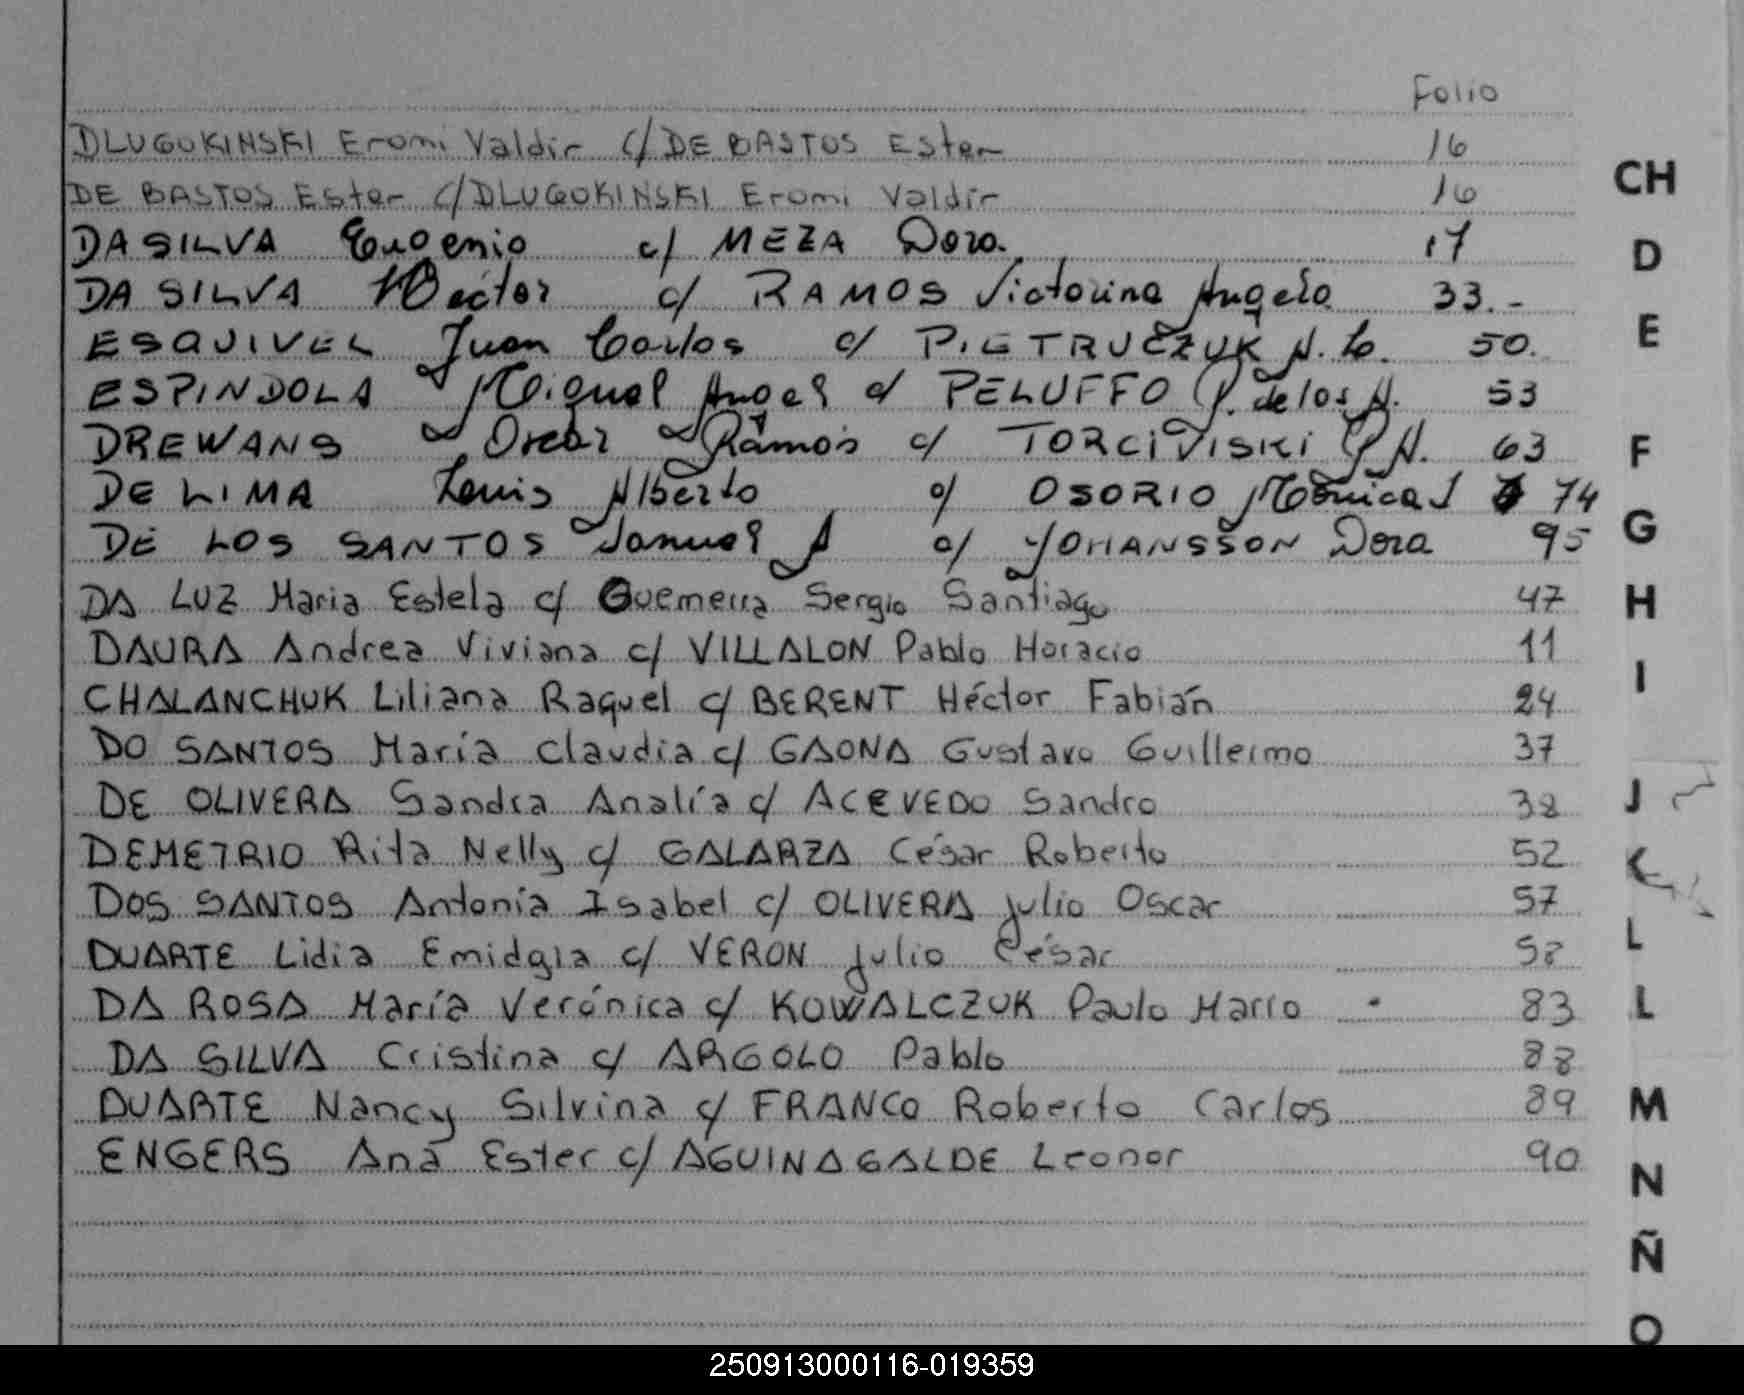 Folio
DLUGOKINSKI Eromi Valdir c/ DE BASTOS Ester 16
DE BASTOS Ester c/ DLUGOKINSKI Eromi Valdir 16
DA SILVA Eugenio c/ MEZA Dora. 17
DA SILVA Hector c/ RAMOS Victorina Angela 33.-
ESQUIVEL Juan Carlos c/ PIETRUCZUK N. C. 50.
ESPINDOLA Miguel Angel c/ PELUFFO P. de los A. 53
DREWANS Oscar Ramos c/ TORCIVISKI P N. 63
DE LIMA Louis Alberto c/ OSORIO Mónica J 74
DE LOS SANTOS Manuel A c/ YOHANSSON Dora 95
DA LUZ Maria Estela c/ Guemerra Sergio Santiago 47
DAURA Andrea Viviana c/ VILLALON Pablo Horacio 11
CHALANCHUK Liliana Raquel c/ BERENT Héctor Fabián 24
DO SANTOS María Claudia c/ GAONA Gustavo Guillermo 37
DE OLIVERA Sandra Analía c/ ACEVEDO Sandro 38
DEMETRIO Rita Nelly c/ GALARZA César Roberto 52
DOS SANTOS Antonia Isabel c/ OLIVERA Julio Oscar 57
DUARTE Lidia Emidgia c/ VERON Julio César 58
DA ROSA María Verónica c/ KOWALCZUK Paulo Mario 83
DA SILVA Cristina c/ ARGOLO Pablo 88
DUARTE Nancy Silvina c/ FRANCO Roberto Carlos 89
ENGERS Ana Ester c/ AGUINAGALDE Leonor 90
CH
D
E
F
G
H
I
J
K
L
L L
M
N
Ñ
O
250913000116-019359